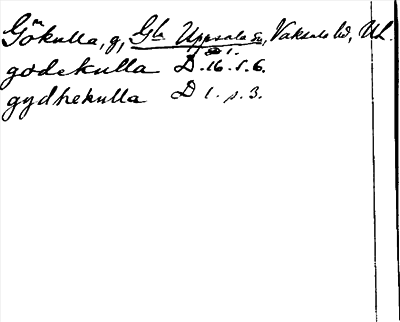 Gökulla, g, Gla Uppsala sn, Vaksala hd, Ul.
D 1.
godekulla D.16.s.6.
gydhekulla D 1.s.3.